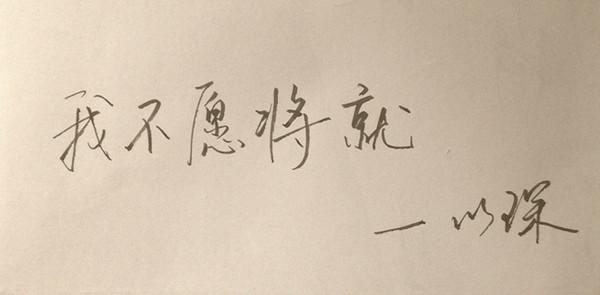 我不愿将就
一以琛